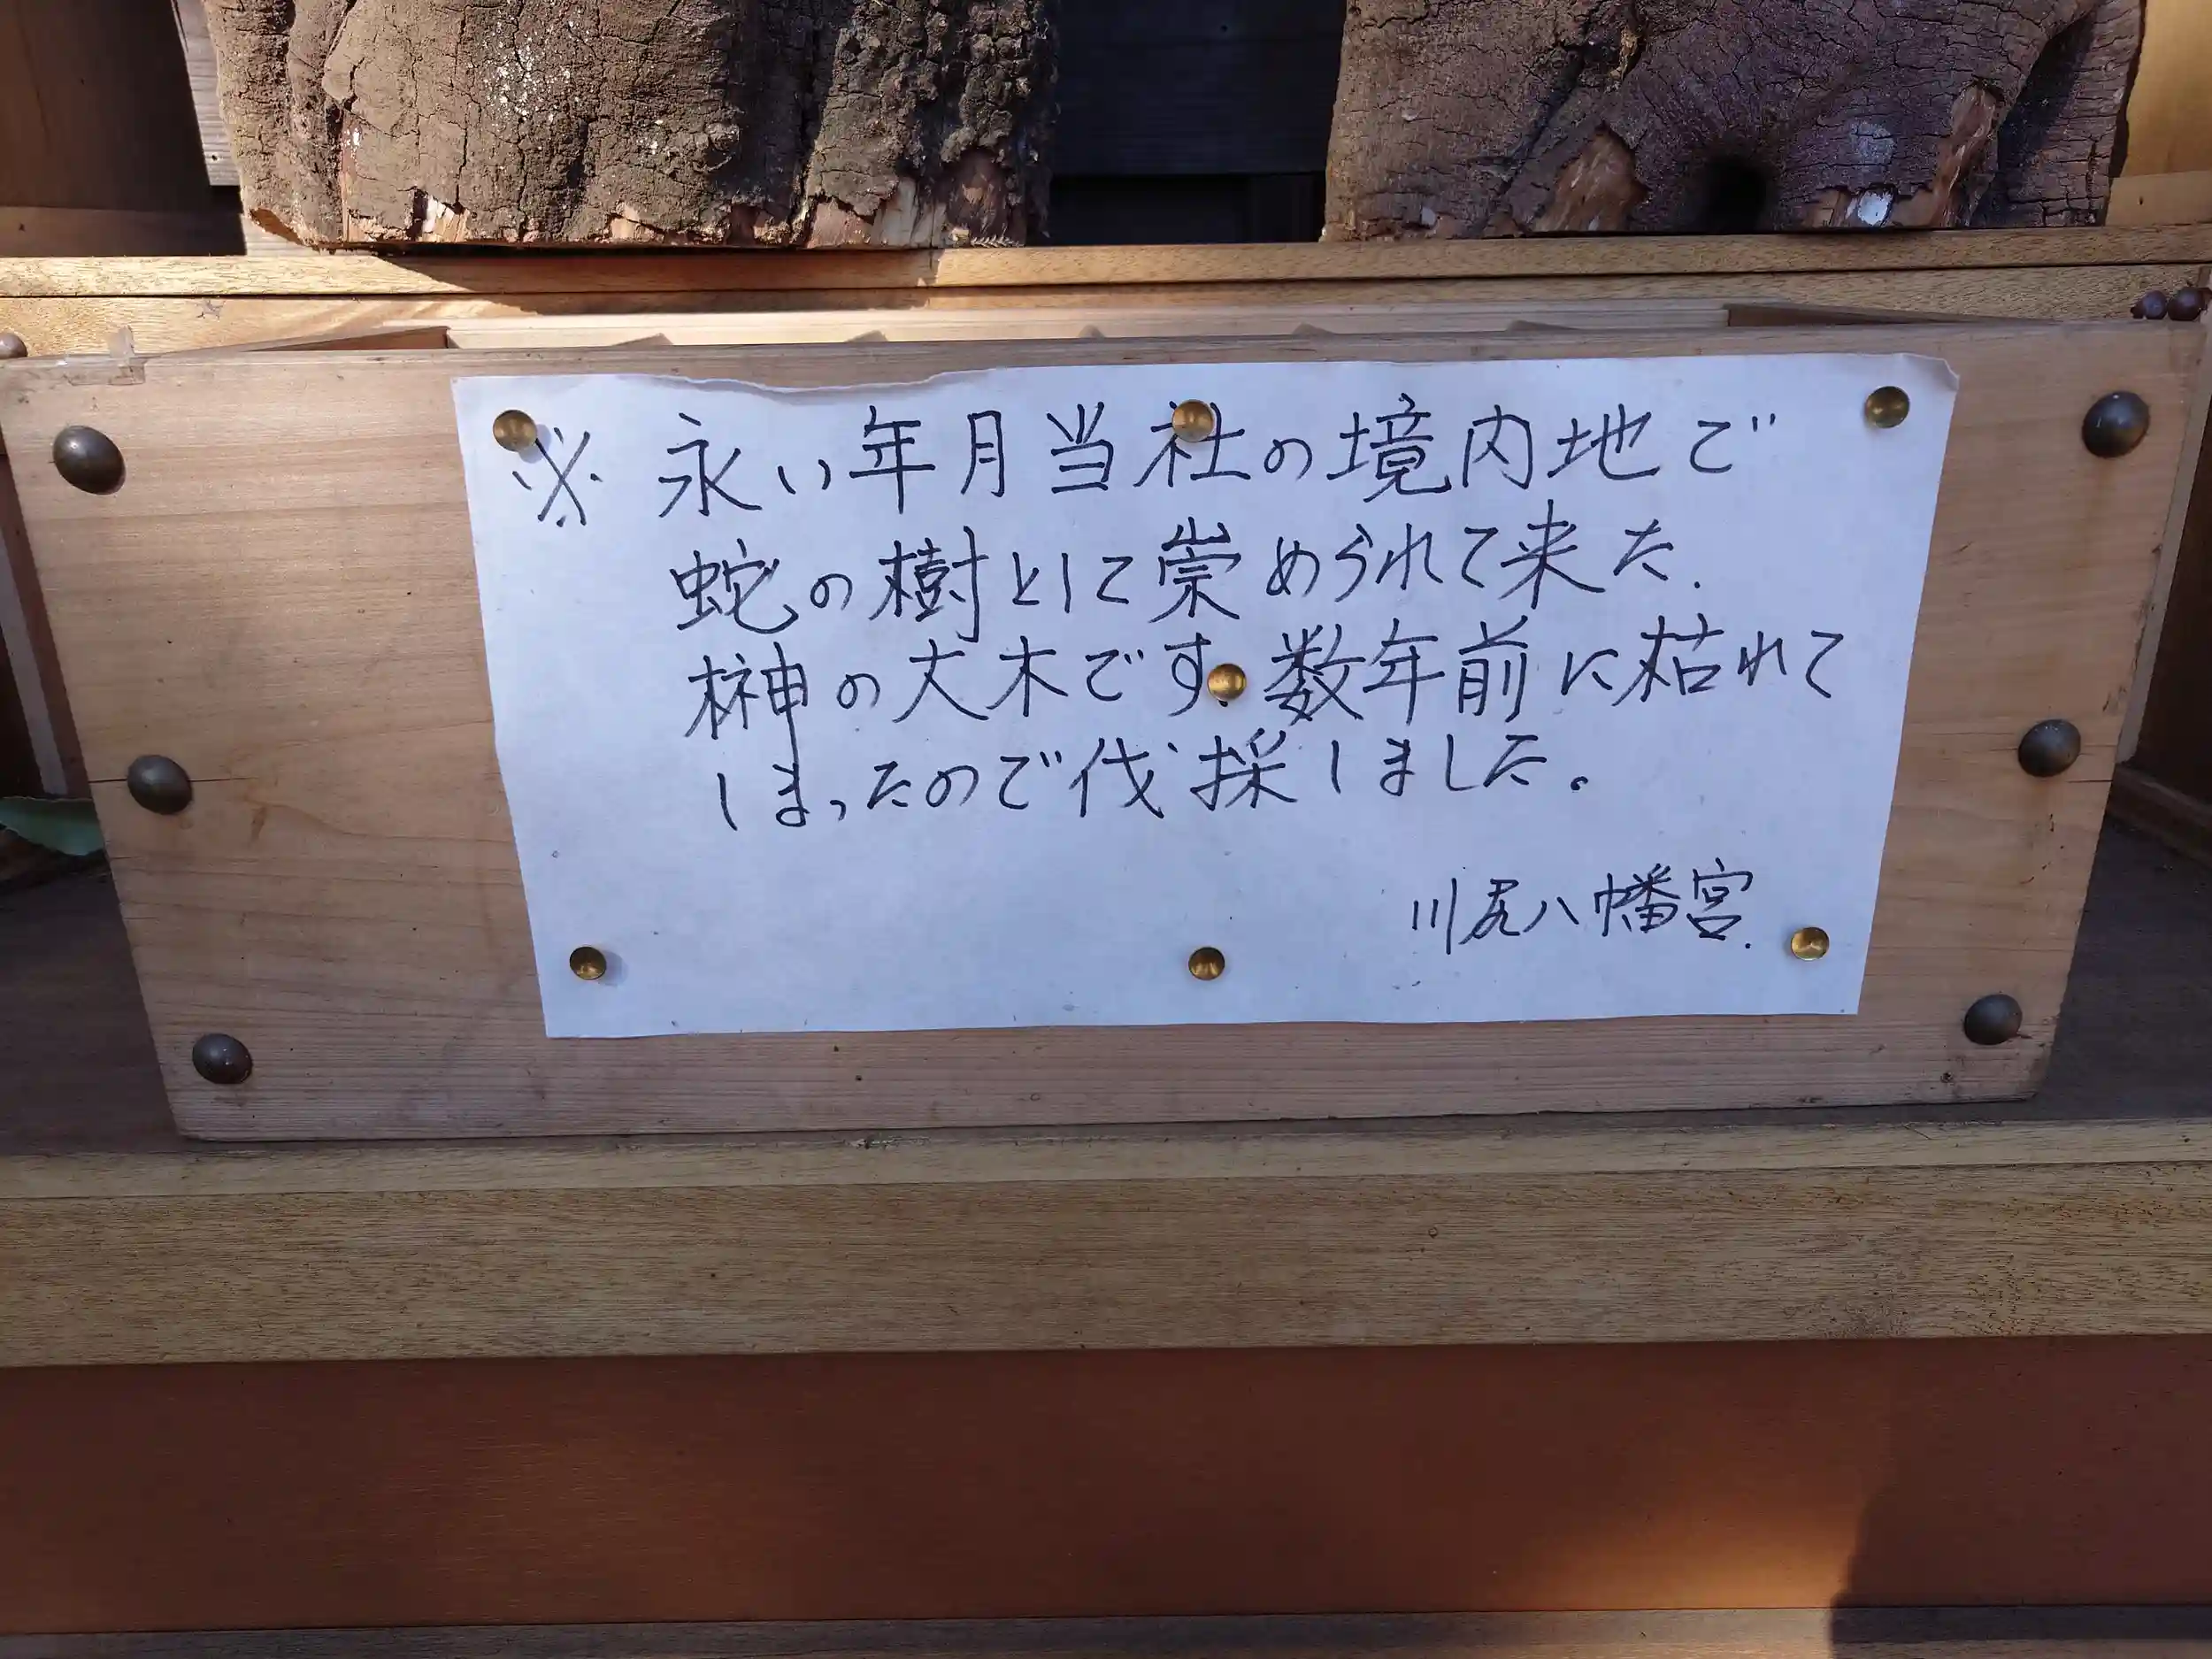 ※ 永い年月当社の境内地で
蛇の樹として崇められて来た.
榊の大木です.数年前に枯れて
しまったので伐採しました。
川尻八幡宮.